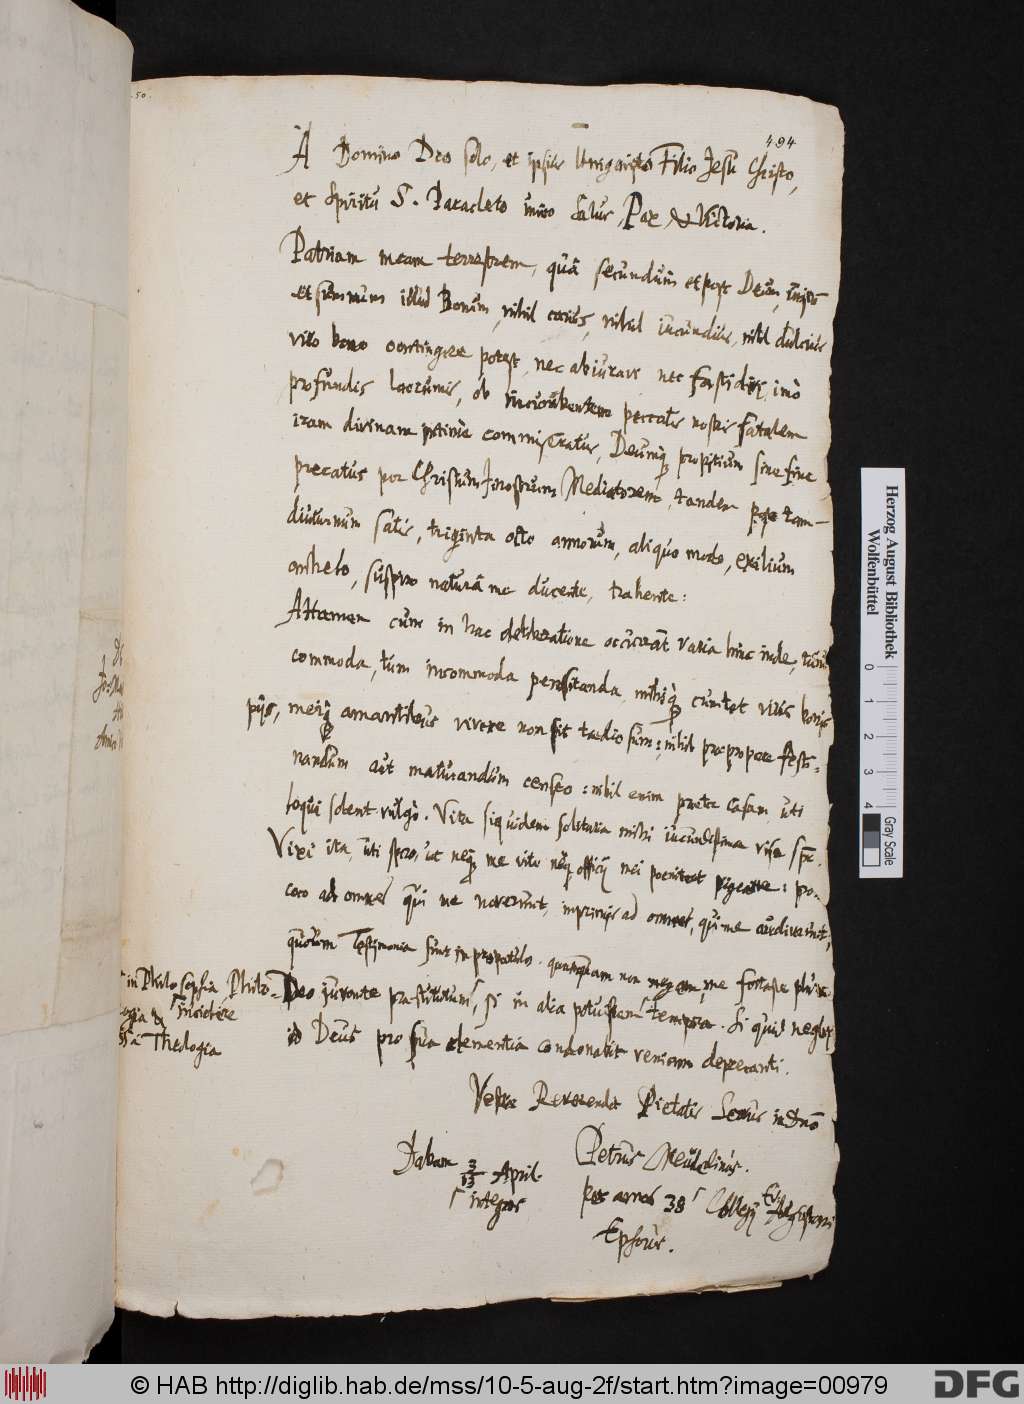 50.
494
A Domino Deo solo, et ipsius Unigenito Filio Jesu Christo,
et Spiritu S. Paracleto unico Salus, Pax & Victoria.
Patriam meam terrestrem, quâ secundum et post Deum, unicum
et summum illud Bonum, nihil carius, nihil iucundius, nihil dulcius
viro bono contingere potest, nec abiurare nec fastidire, imò
profundis lacrumis, ob peccatis nostris fatalem
iram divinam commiseratus, Deumq; propitium sine fine
precatus per Christum nostrum Mediatorem, tandem post tam
diuturnum satis, triginta octo annorum, aliquo modo, exilium
anhelo, suspiro naturâ me ducente, trahente:
Attamen cum in hac deliberatione occurrãt varia hinc inde, tum
commoda, tum incommoda pensitanda, mihiq; cum tot viris bonis
pijs, meiq; amantibus vivere non sit taedio sum; nihil praepropere festi=
nandum aut maturandum censeo: nihil enim praeter casam, uti
loqui solent vulgò. Vita siquidem solitaria mihi iucundissima visa
Vixi ita, uti spero, ut neq; me vitae neq; officij mei poeniteat pigeatve: pro=
voco ad omnes qui me noverunt, inprimis ad omnes, qui me audiverunt,
quorum Testimonia sunt in propatulo. quanquam non negem, me fortasse plura
in Philosophia Philo=
Deo iuvante praestiturum, si in alia potuissem tempora. Si quid neglexi
& incidere
id Deus pro sua clementia condonabit veniam deprecanti.
Theologia
Vestrae Reverendae Pietatis Servus in Dño
Petrus Meuslinus.
Dabam 3/13 April.
per annos 38 Collegij Ev. Augustani
integros
Ephorus.
Herzog August Bibliothek
Wolfenbüttel
0 1 2 3 4
Gray Scale
© HAB http://diglib.hab.de/mss/10-5-aug-2f/start.htm?image=00979
DFG